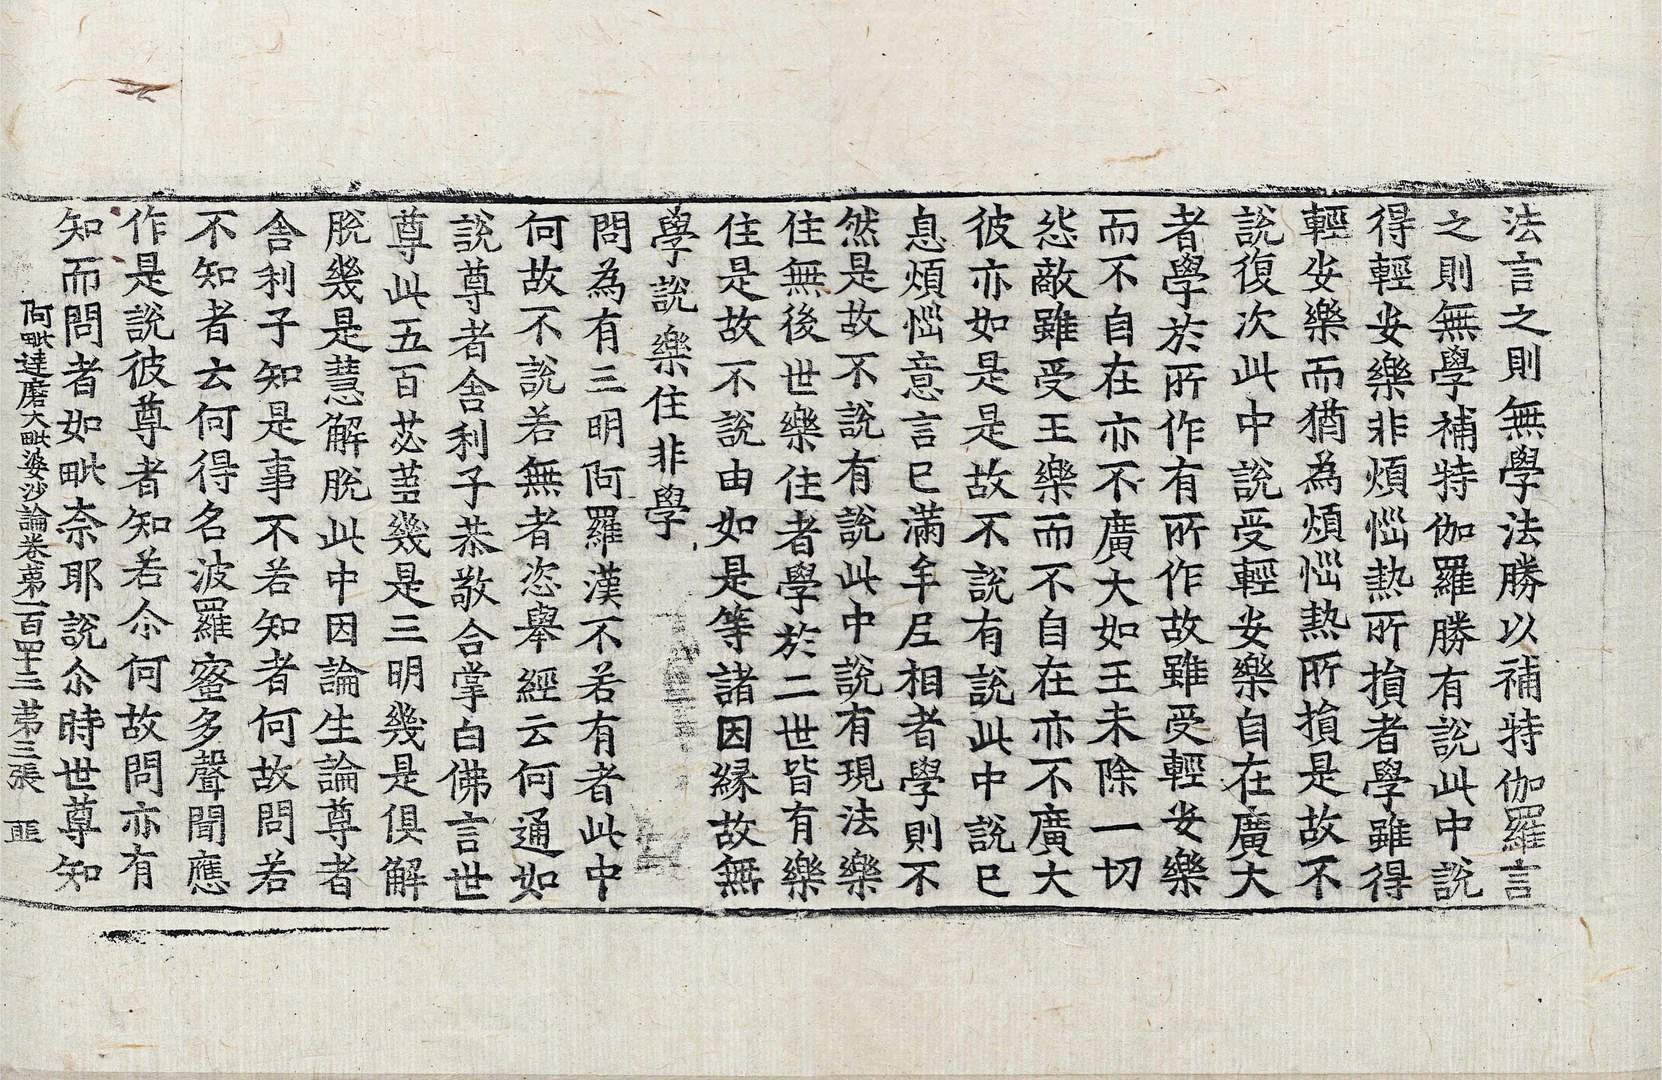 法言之則無學法勝以補特伽羅言
之則無學補特伽羅勝有說此中說
得輕安樂非煩惱熱所損者學雖得
輕安樂而猶為煩惱熱所損是故不
說復次此中說受輕安樂自在廣大
者學於所作有所作故雖受輕安樂
而不自在亦不廣大如王未除一切
怨敵雖受王樂而不自在亦不廣大
彼亦如是是故不說有說此中說已
息煩惱意言已滿牟尼相者學則不
然是故不說有說此中說有現法樂
住無後世樂住者學於二世皆有樂
住是故不說由如是等諸因緣故無
學說樂住非學
問為有三明阿羅漢不若有者此中
何故不說若無者恣舉經云何通如
說尊者舍利子恭敬合掌白佛言世
尊此五百苾芻幾是三明幾是俱解
脫幾是慧解脫此中因論生論尊者
舍利子知是事不若知者何故問若
不知者云何得名波羅蜜多聲聞應
作是說彼尊者知若尒何故問亦有
知而問者如毗奈耶說尒時世尊知
阿毗達磨大毗婆沙論卷第一百四十三 第三張 匪